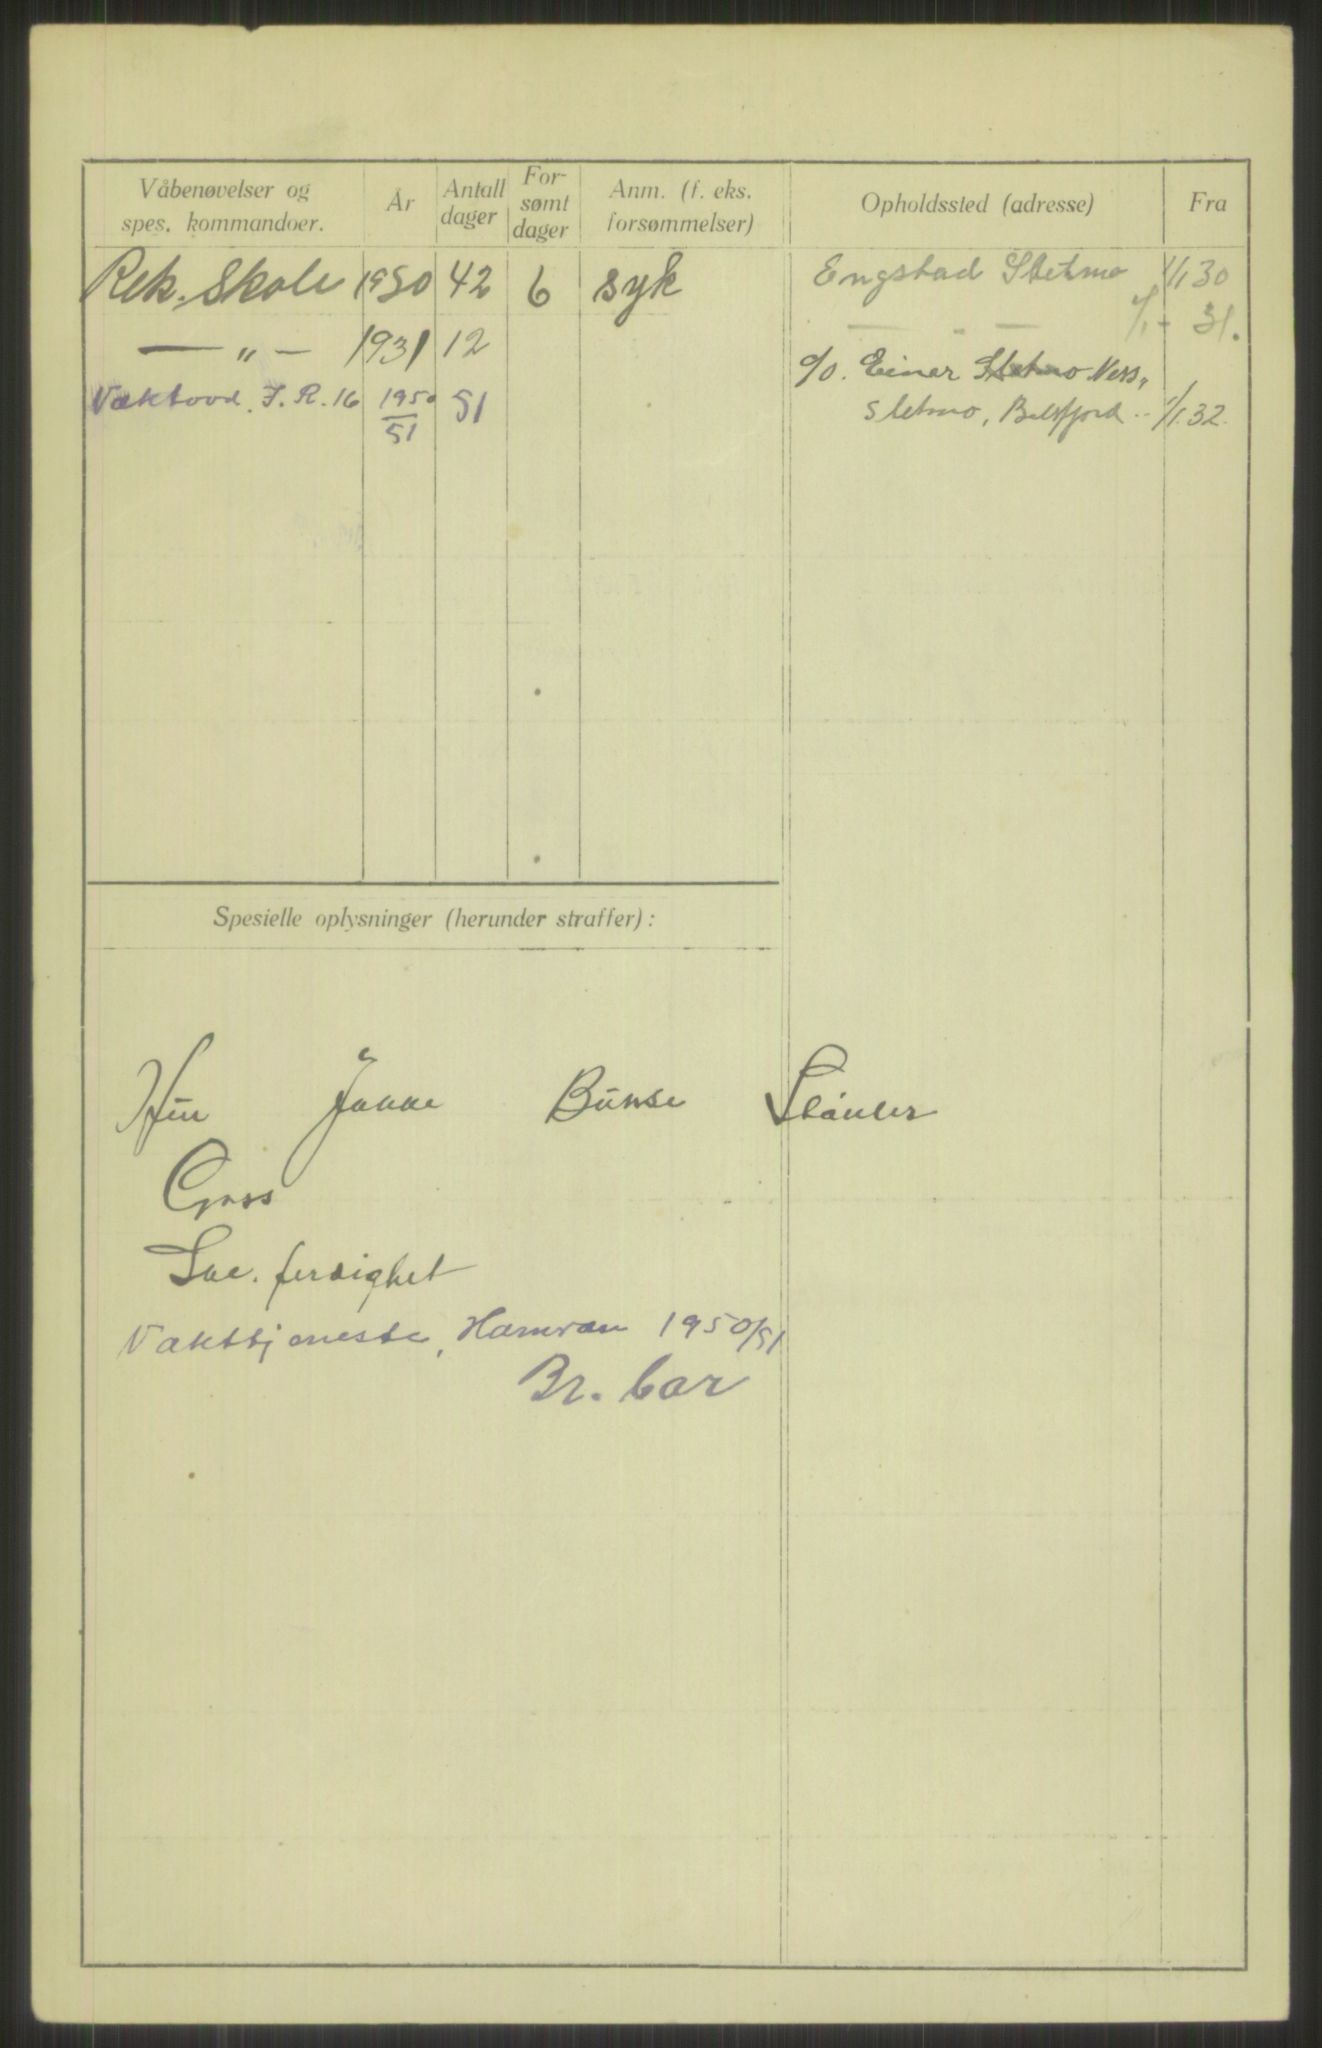 Våbenøvelser og
spes. kommandoer.
År
Antall
dager
For-
sømt
dager
Anm. (f. eks.
forsømmelser)
Opholdssted (adresse)
Fra
Rek. Skole 1930 42 6 syk
— " — 1931 12
Vaktavd. I.R. 16 1950/51 51
Engstad Sletmo 1/1 30
— " — 1/1 - 31.
c/o. Einar Sletmo Ners,
Sletmo, Balsfjord .. 1/1 32.
Spesielle oplysninger (herunder straffer):
Hue Jakke Bukse Støvler
Grass
Sæ. ferdighet
Vakttjeneste, Hamran 1950/51
Br. bar